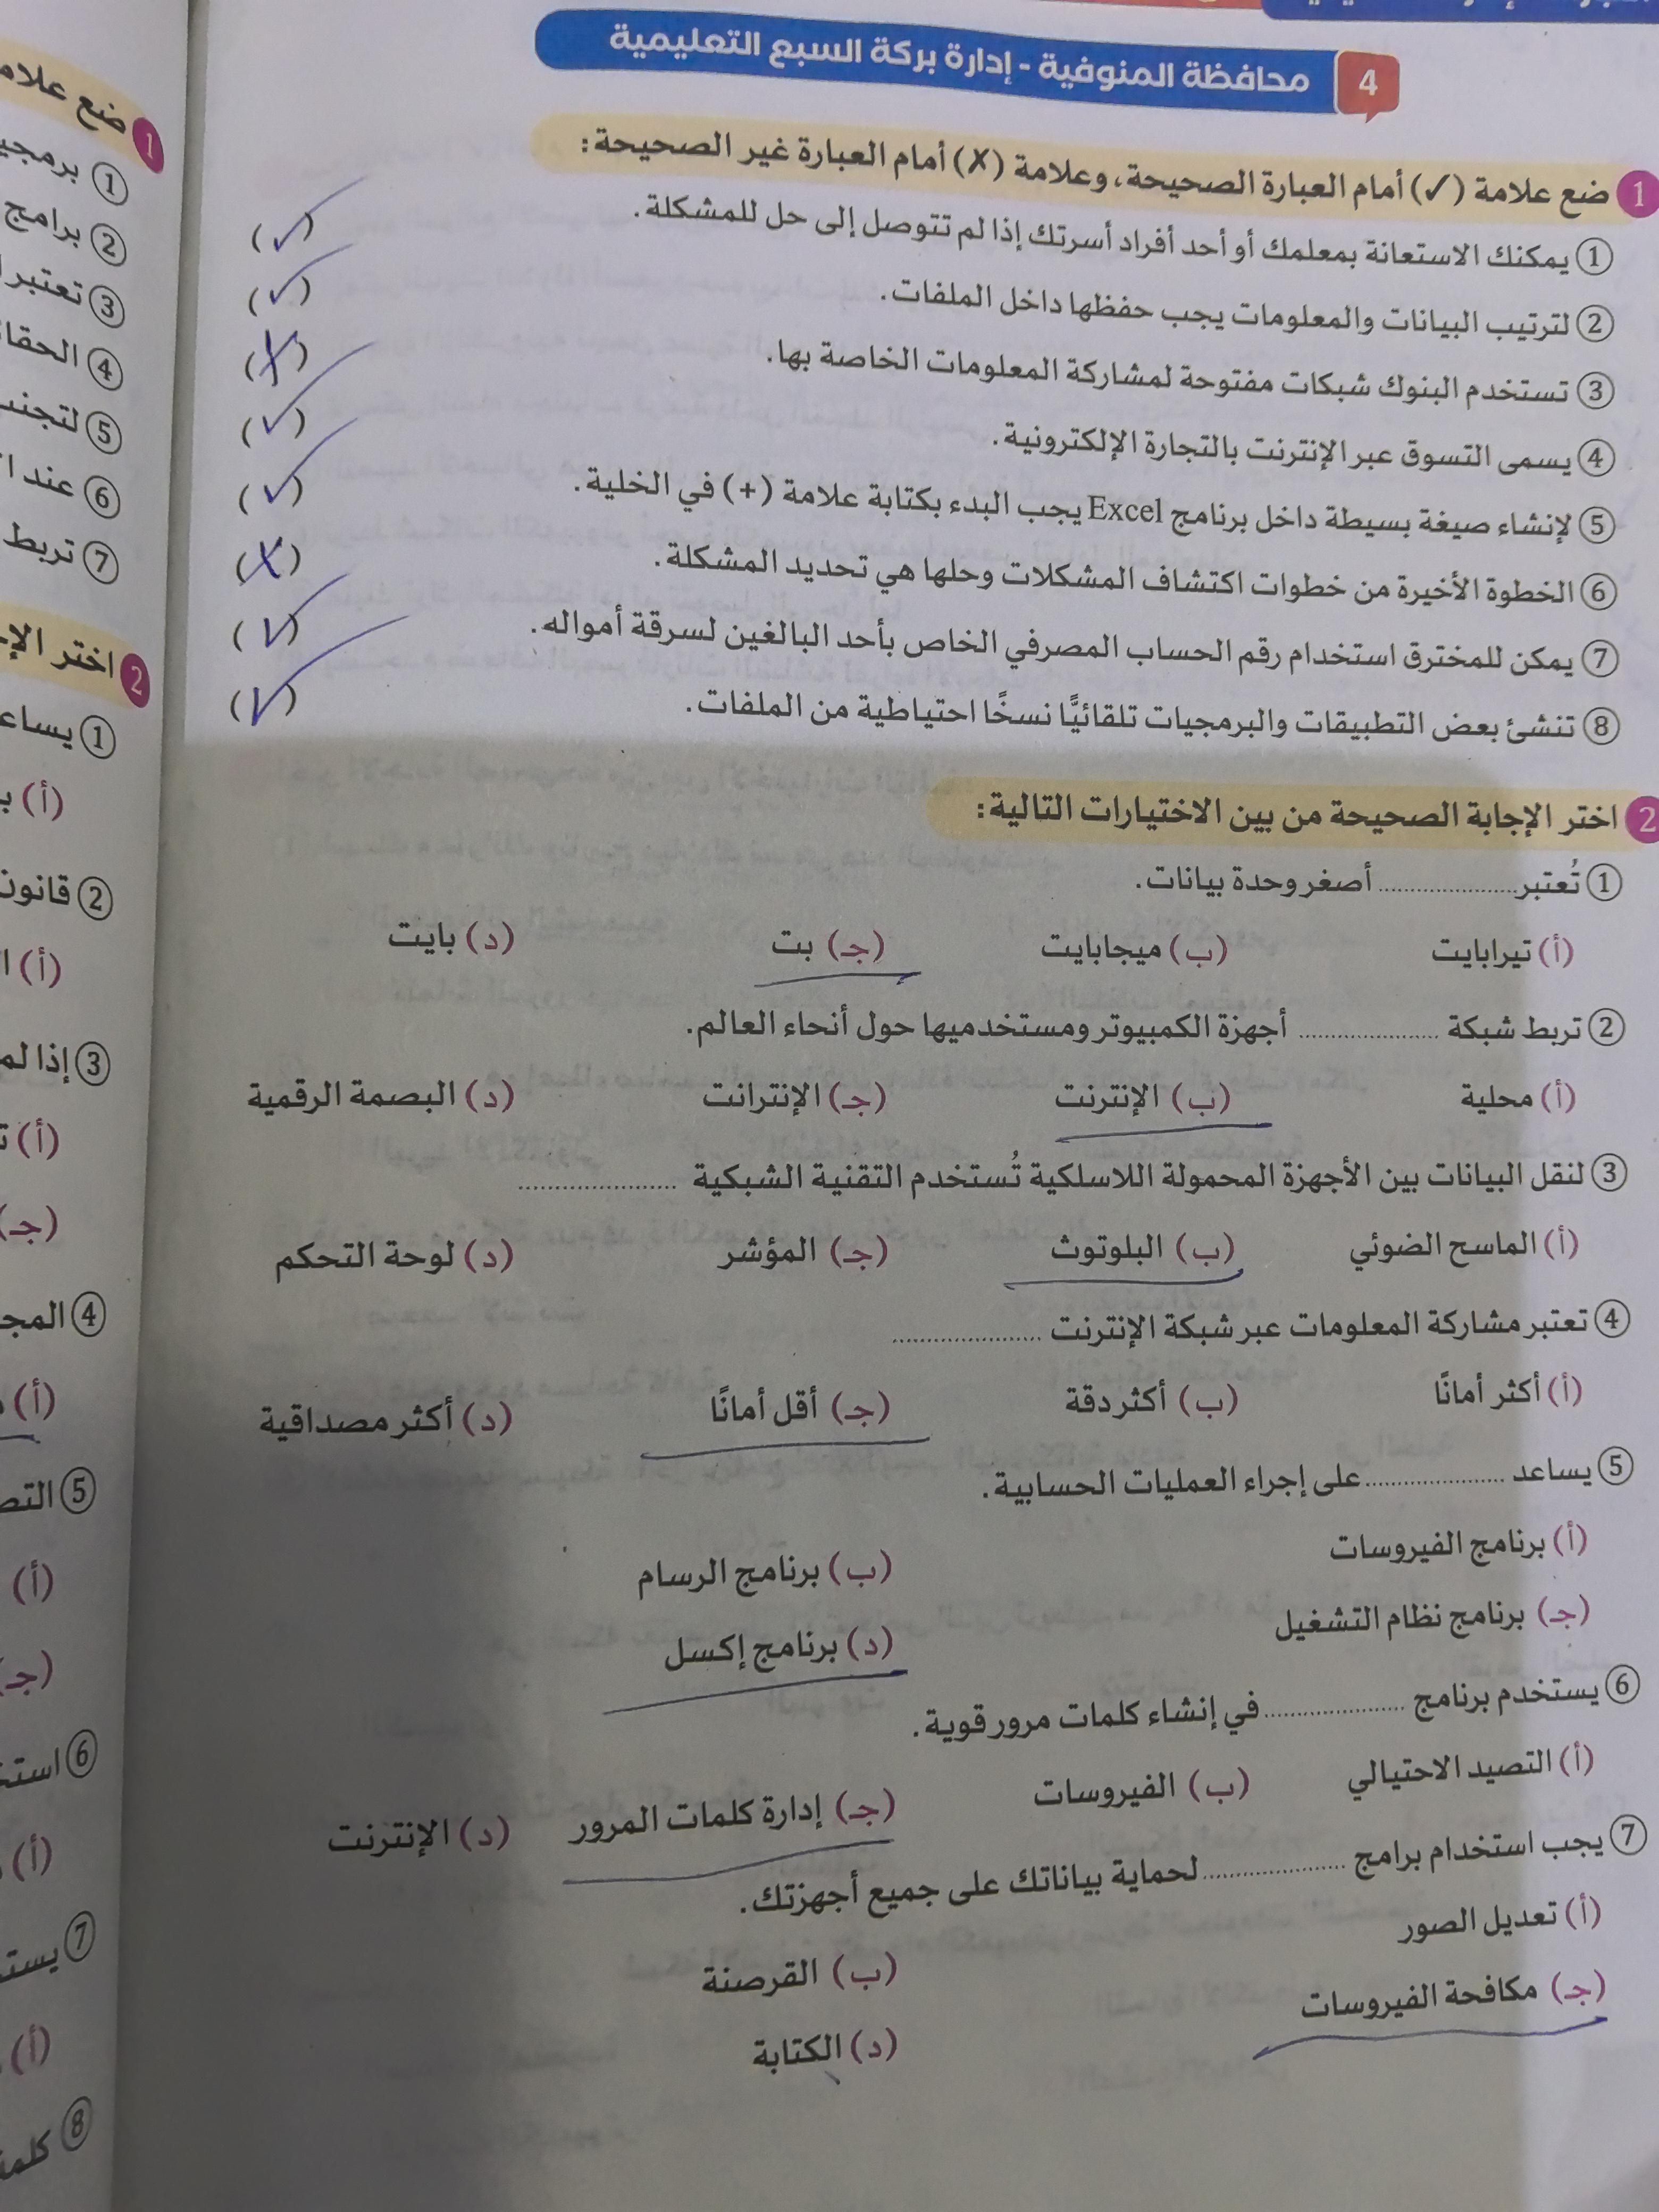 4 محافظة المنوفية - إدارة بركة السبع التعليمية
1 ضع علامة (✓) أمام العبارة الصحيحة، وعلامة (✗) أمام العبارة غير الصحيحة:
① يمكنك الاستعانة بمعلمك أو أحد أفراد أسرتك إذا لم تتوصل إلى حل للمشكلة. (✓)
② لترتيب البيانات والمعلومات يجب حفظها داخل الملفات. (✓)
③ تستخدم البنوك شبكات مفتوحة لمشاركة المعلومات الخاصة بها. (✗)
④ يسمى التسوق عبر الإنترنت بالتجارة الإلكترونية. (✓)
⑤ لإنشاء صيغة بسيطة داخل برنامج Excel يجب البدء بكتابة علامة (+) في الخلية. (✓)
⑥ الخطوة الأخيرة من خطوات اكتشاف المشكلات وحلها هي تحديد المشكلة. (✗)
⑦ يمكن للمخترق استخدام رقم الحساب المصرفي الخاص بأحد البالغين لسرقة أمواله. (✓)
⑧ تنشئ بعض التطبيقات والبرمجيات تلقائيًّا نسخًا احتياطية من الملفات. (✓)
2 اختر الإجابة الصحيحة من بين الاختيارات التالية:
① تُعتبر .................... أصغر وحدة بيانات.
(أ) تيرابايت (ب) ميجابايت (جـ) بت (د) بايت
② تربط شبكة .................... أجهزة الكمبيوتر ومستخدميها حول أنحاء العالم.
(أ) محلية (ب) الإنترنت (جـ) الإنترانت (د) البصمة الرقمية
③ لنقل البيانات بين الأجهزة المحمولة اللاسلكية تُستخدم التقنية الشبكية ....................
(أ) الماسح الضوئي (ب) البلوتوث (جـ) المؤشر (د) لوحة التحكم
④ تعتبر مشاركة المعلومات عبر شبكة الإنترنت ....................
(أ) أكثر أمانًا (ب) أكثر دقة (جـ) أقل أمانًا (د) أكثر مصداقية
⑤ يساعد .................... على إجراء العمليات الحسابية.
(أ) برنامج الفيروسات (ب) برنامج الرسام
(جـ) برنامج نظام التشغيل (د) برنامج إكسل
⑥ يستخدم برنامج .................... في إنشاء كلمات مرور قوية.
(أ) التصيد الاحتيالي (ب) الفيروسات (جـ) إدارة كلمات المرور (د) الإنترنت
⑦ يجب استخدام برامج .................... لحماية بياناتك على جميع أجهزتك.
(أ) تعديل الصور (ب) القرصنة
(جـ) مكافحة الفيروسات (د) الكتابة
1 ضع
②  برامج
③ تعتبر
⑥ عند
⑦ تربط
2 اختر
(أ)
②
(أ)
③ إذا لم
(أ)
(جـ)
④
(أ)
⑤
(أ)
(جـ)
⑥
(أ)
⑦
(أ)
⑧